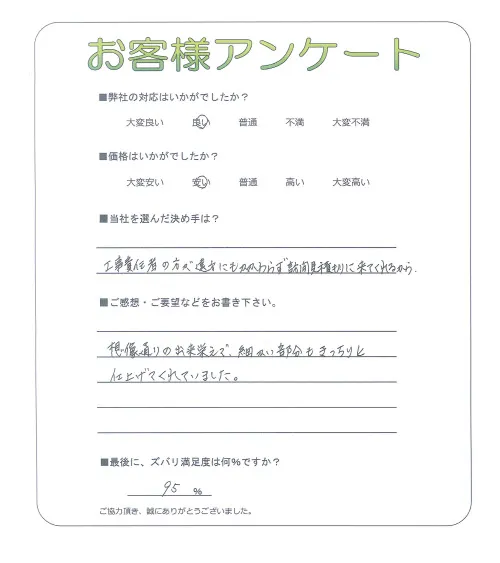 お客様アンケート
■弊社の対応はいかがでしたか？
大変良い 良い 普通 不満 大変不満
■価格はいかがでしたか？
大変安い 安い 普通 高い 大変高い
■当社を選んだ決め手は？
工事責任者の方が遠方にもかかわらず訪問見積りに来てくれるから.
■ご感想・ご要望などをお書き下さい。
想像通りの出来栄えで、細かい部分もきっちりと
仕上げてくれていました。
■最後に、ズバリ満足度は何％ですか？
95 %
ご協力頂き、誠にありがとうございました。